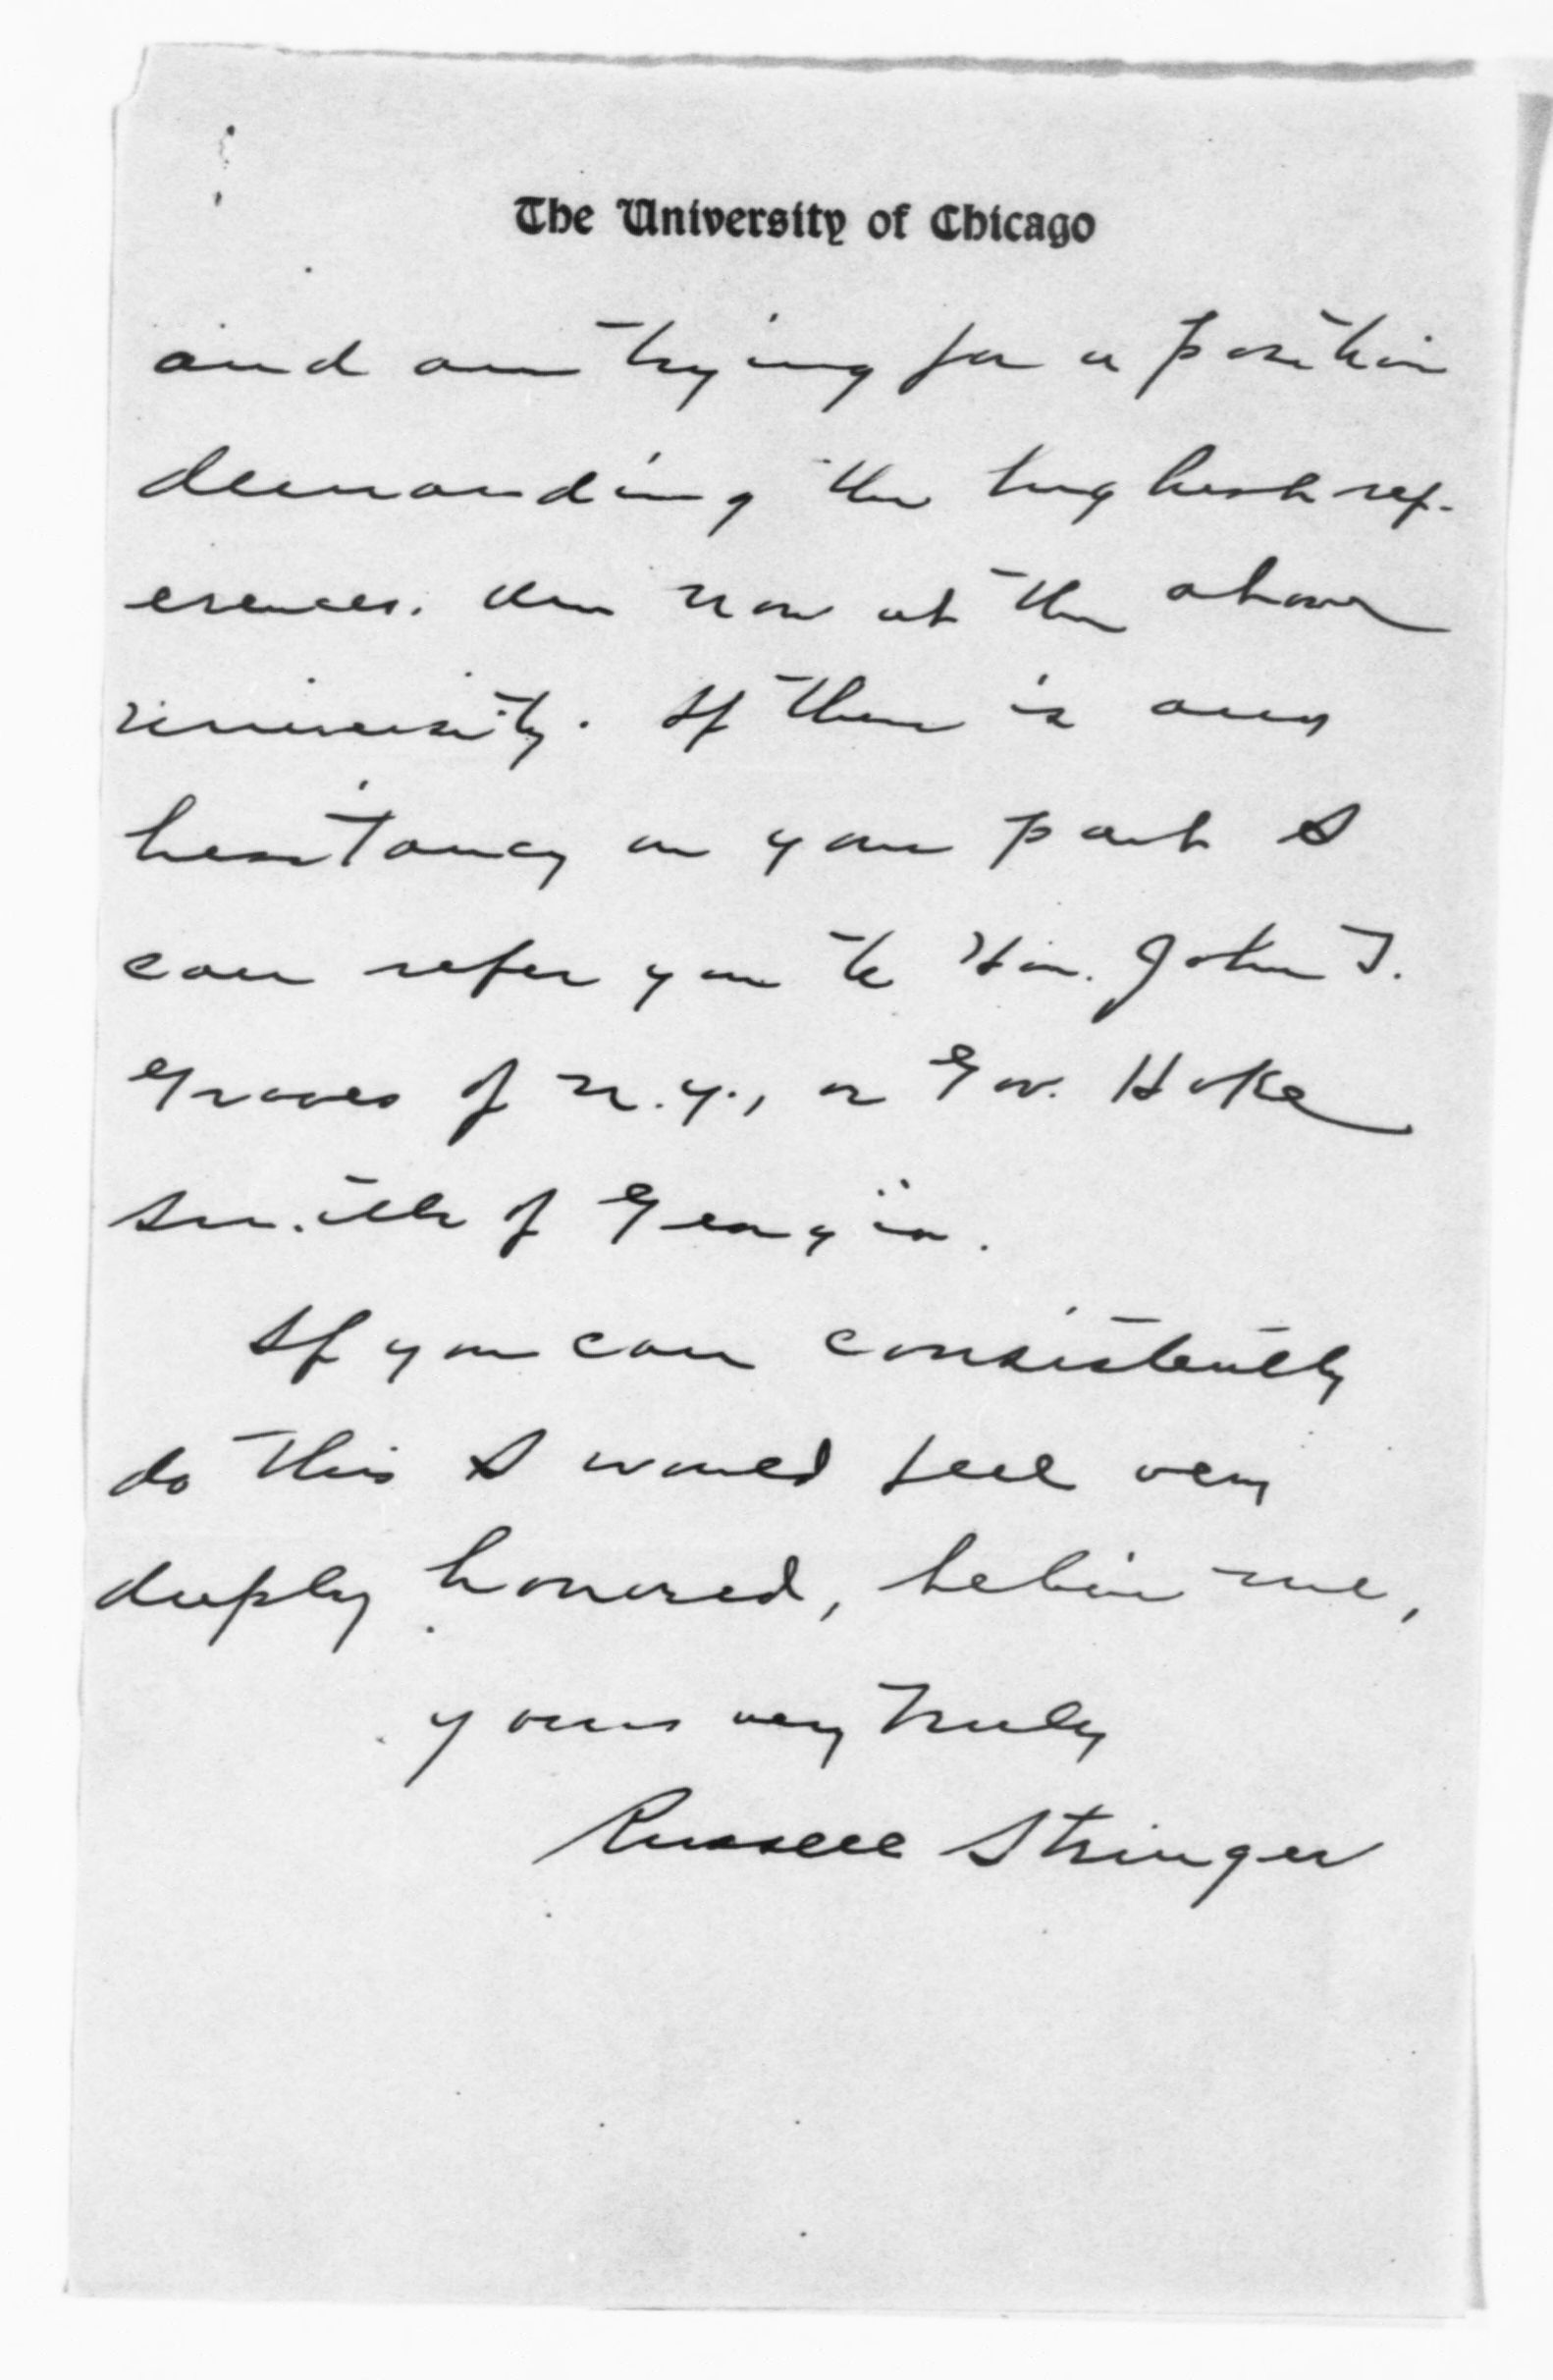 The University of Chicago
and am trying for a position
demanding the highest ref-
erences. Am now at the above
university. If there is any
hesitancy on your part I
can refer you to Hon. John T.
Graves of N.Y., or Gov. Hoke
Smith of Georgia.
If you can consistently
do this I would feel very
deeply honored, believe me,
yours very truly
Russell Stringer